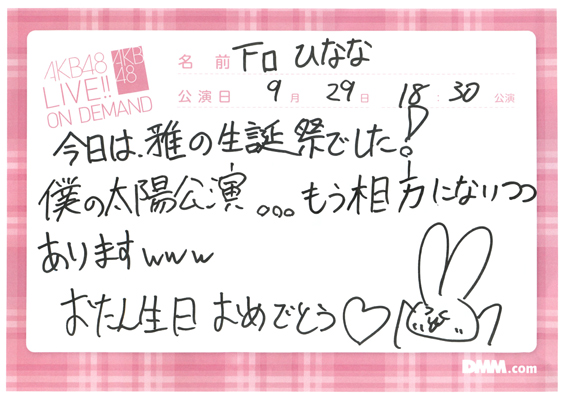 AKB48
LIVE!!
ON DEMAND
AKB
48
名前 下口 ひなな
公演日 9月 29日 18:30 公演
今日は、雅の生誕祭でした!
僕の太陽公演。。。もう相方になりつつ
ありますwww
おたん生日 おめでとう♡
DMM.com